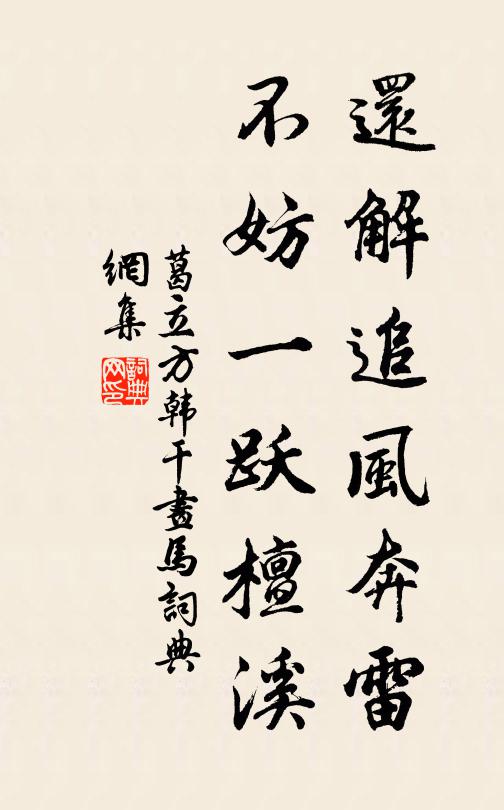 還解追風奔雷
不妨一跃檀溪
葛立方韩干畫馬詞典
網集
詞典网印